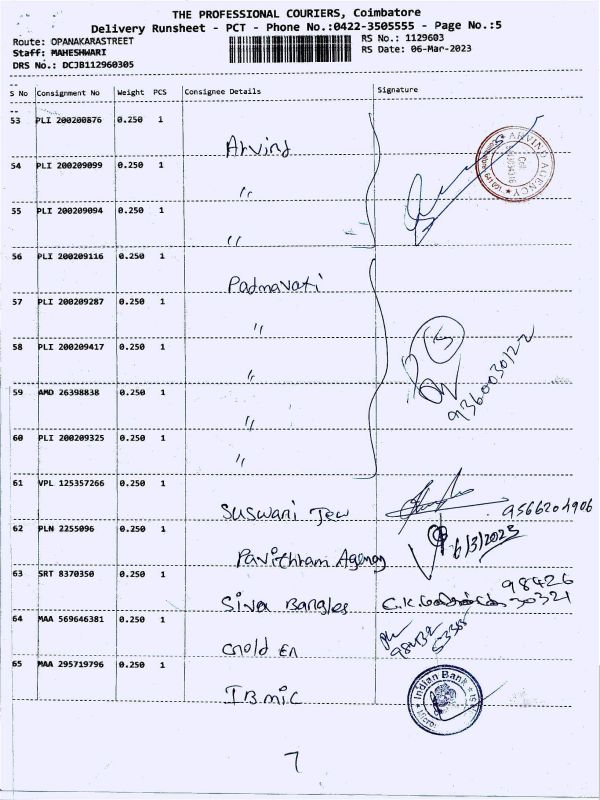 THE PROFESSIONAL COURIERS, Coimbatore
Delivery Runsheet - PCT - Phone No.:0422-3505555 - Page No.:5
Route: OPANAKARASTREET
RS No.: 1129603
Staff: MAHESHWARI
RS Date: 06-Mar-2023
DRS No.: DCJB112960305
S No Consignment No Weight PCS Consignee Details Signature
53 PLI 200200876 0.250 1 Arvind
54 PLI 200209099 0.250 1 "
55 PLI 200209094 0.250 1 "
ARVIND AGENCY
56 PLI 200209116 0.250 1 Padmavati
57 PLI 200209287 0.250 1 "
58 PLI 200209417 0.250 1 "
59 AMD 26398838 0.250 1 "
60 PLI 200209325 0.250 1 "
9360030122
61 VPL 125357266 0.250 1 Suswani Jew
62 PLN 2255096 0.250 1 Pavithram Agency 6/3/2023
63 SRT 8370350 0.250 1 Siva Bangles 98426 30321
64 MAA 569646381 0.250 1
65 MAA 295719796 0.250 1 IBmic
Indian Bank
7